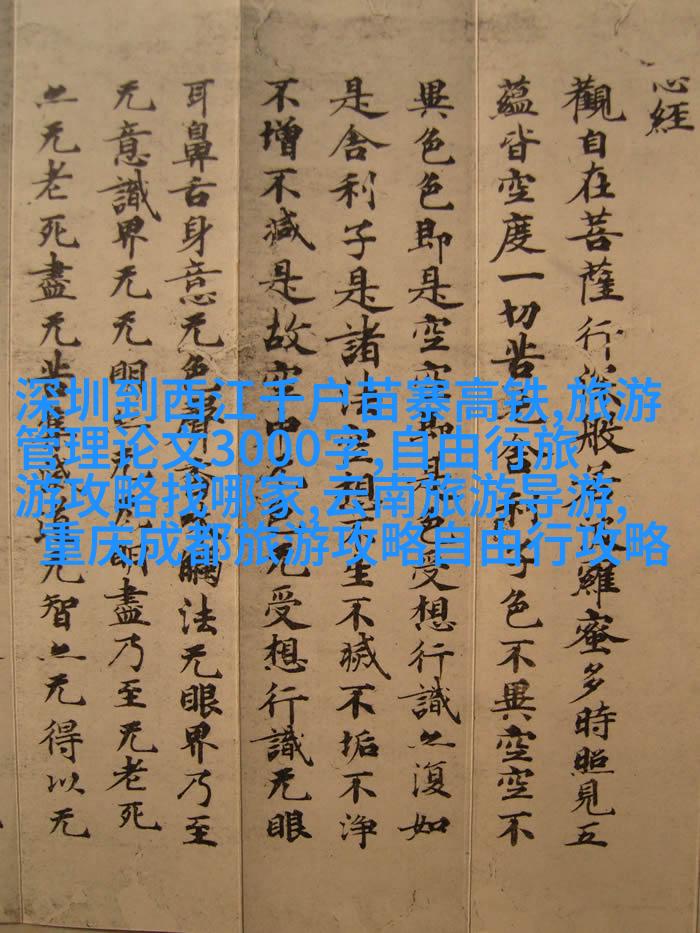 心経
觀自在菩薩行深般若波羅蜜多時照見五
蘊皆空度一切苦厄舍利子色不異空空不
異色色即是空空即是色受想行識亦復如
是舍利子是諸法空相不生不滅不垢不浄
不增不減是故空中无色无受想行識无眼
耳鼻舌身意无色聲香味觸法无眼界乃至
无意識界无无明亦无无明盡乃至无老死
亦无老死盡无苦集滅道无智亦无得以无
深圳到西江千户苗寨高铁,旅游
管理论文3000字,自由行旅
游攻略找哪家,云南旅游导游,
重庆成都旅游攻略自由行攻略